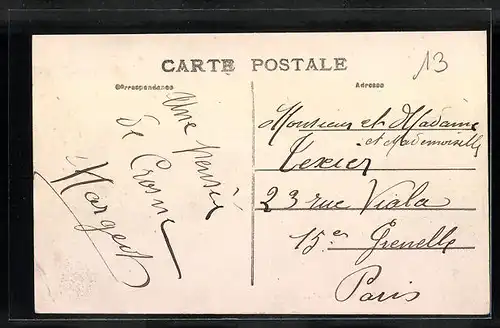 13
CARTE POSTALE
Correspondance
Adresse
Une pensée
de Crosne
Margerit
Monsieur et Madame
et Mademoiselle
Texier
23 rue Viala
15e Grenelle
Paris